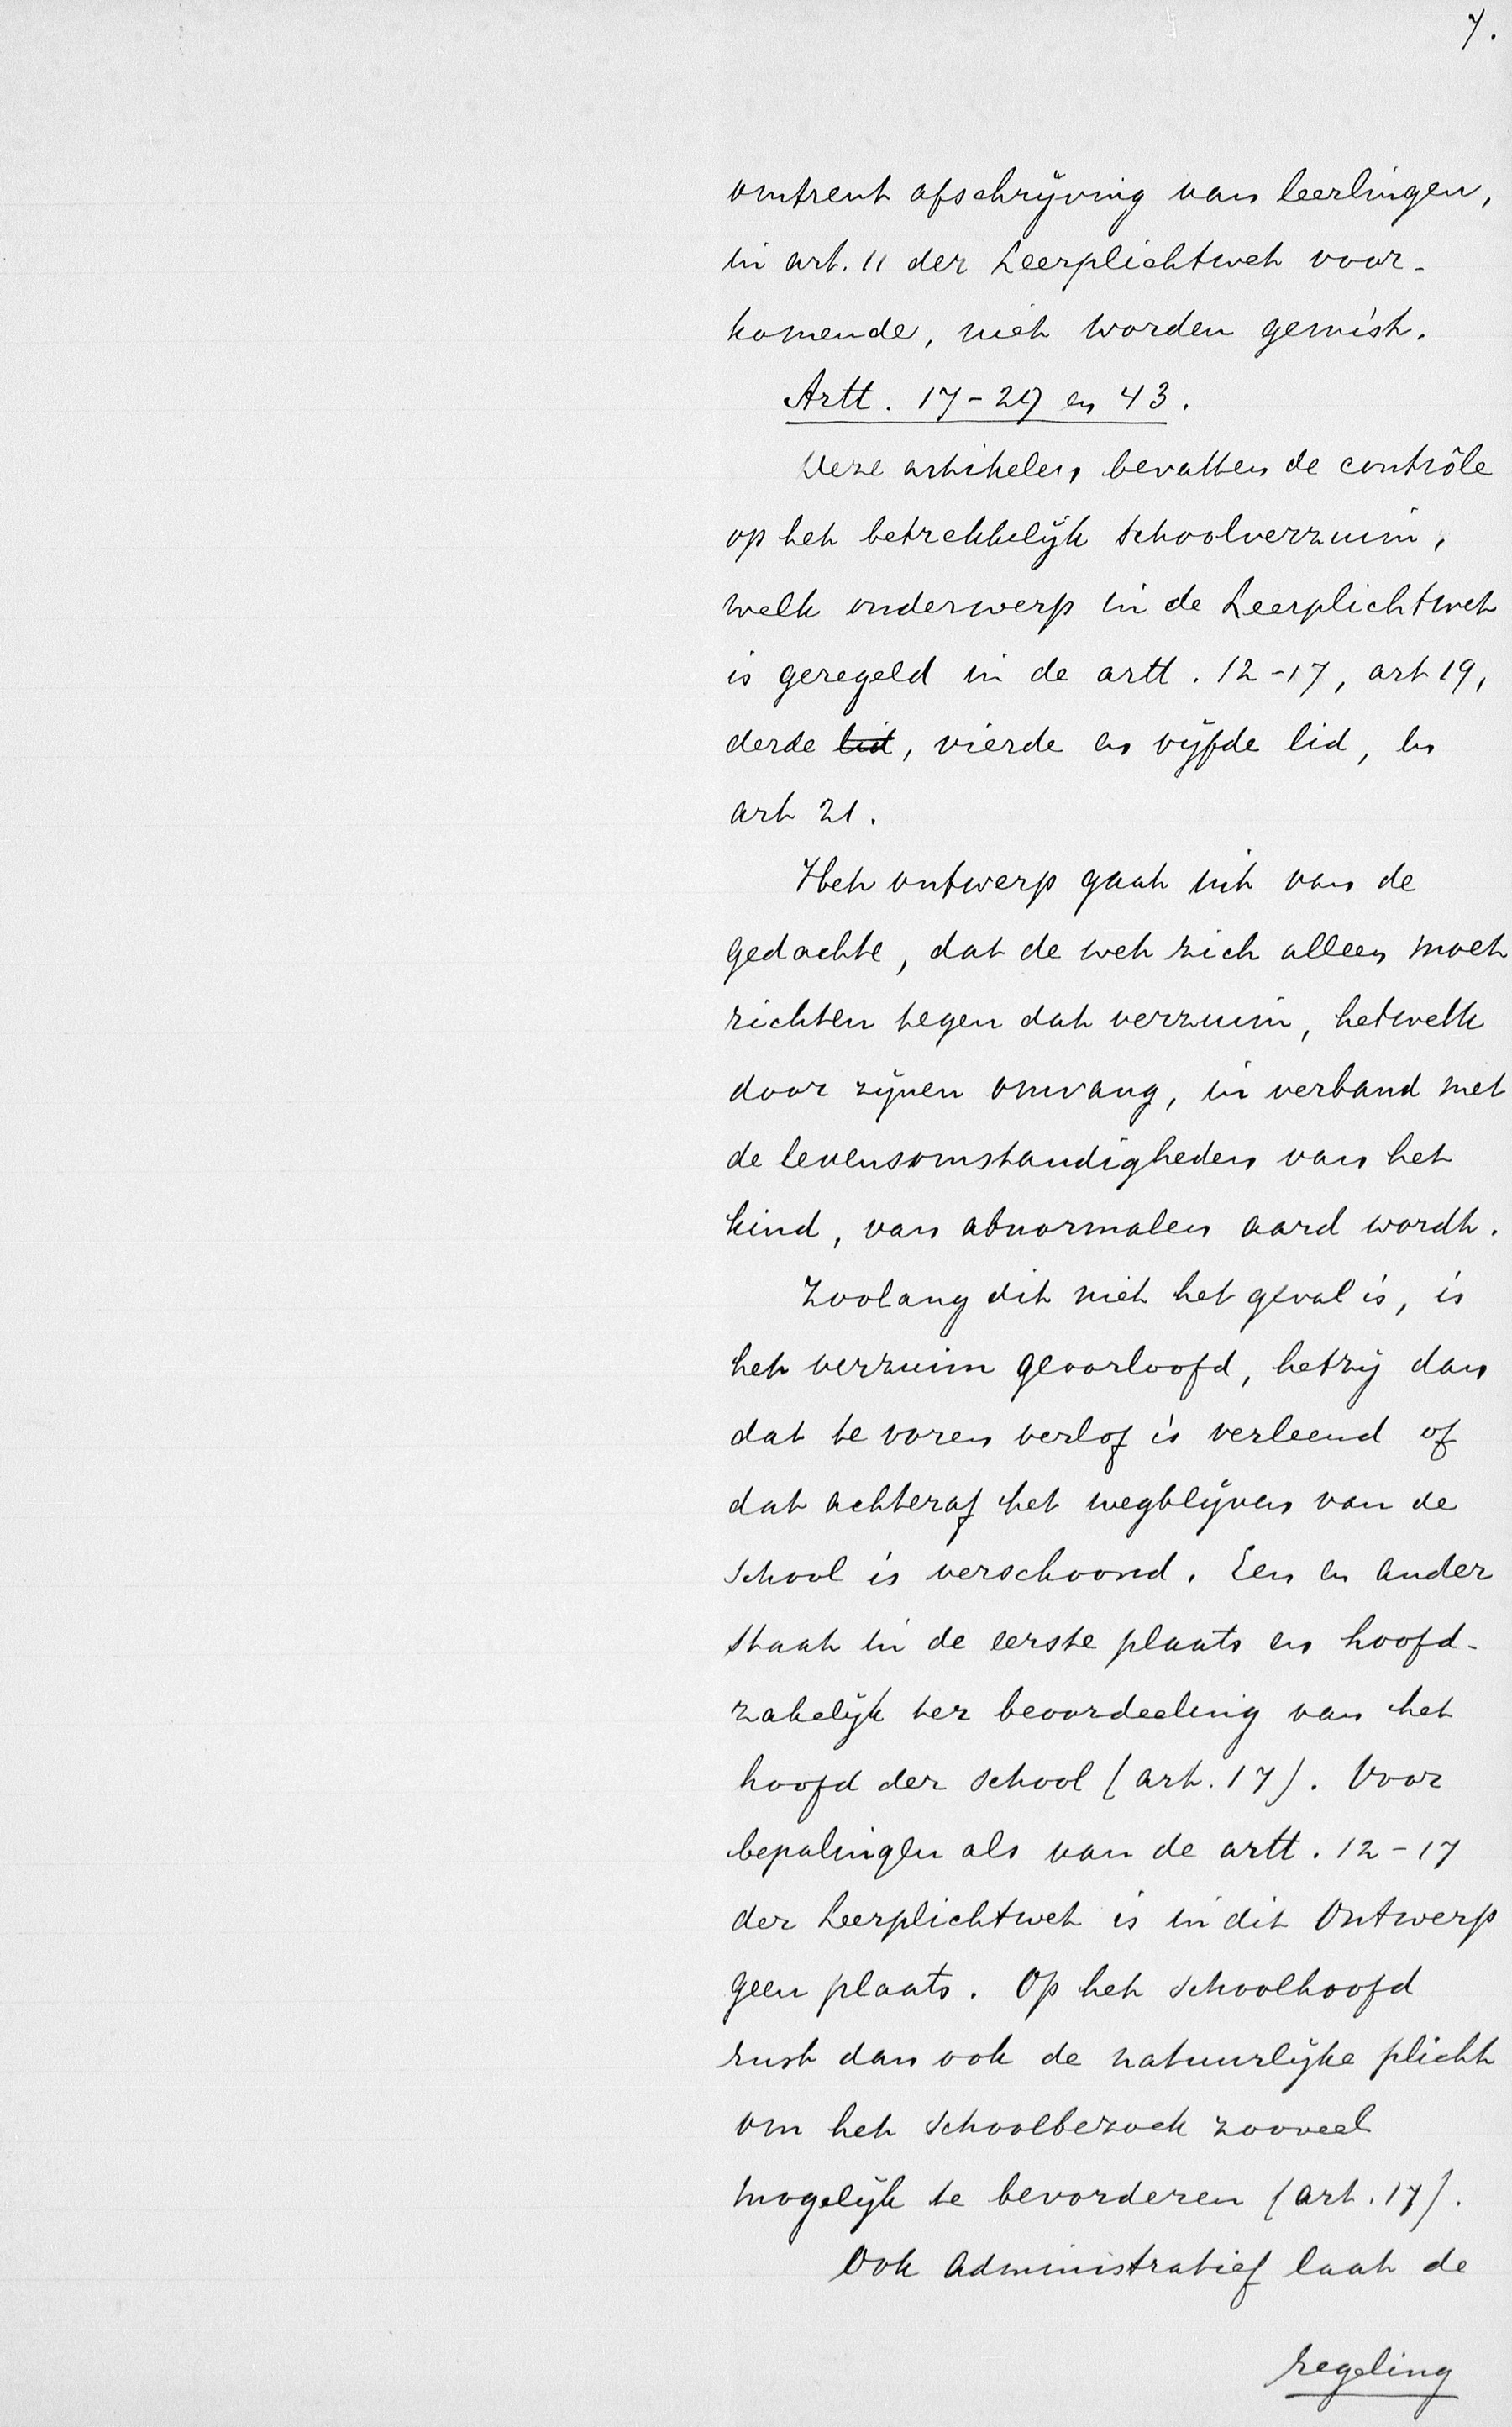 7.
omtrent afschrijving van leerlingen,
in art. 11 der Leerplichtwet voor-
komende, niet worden gemist.
Artt. 17-29 en 43.
Deze artikelen bevatten de contrôle
op het betrekkelijk schoolverzuim,
welk onderwerp in de Leerplichtwet
is geregeld in de artt. 12-17, art 19,
derde lid, vierde en vijfde lid, en
art 21.
Het ontwerp gaat uit van de
gedachte, dat de wet zich alleen moet
richten tegen dat verzuim, hetwelk
door zijnen omvang, in verband met
de levensomstandigheden van het
kind, van abnormalen aard wordt.
Zoolang dit niet het geval is, is
het verzuim geoorloofd, hetzij dan
dat te voren verlof is verleend of
dat achteraf het wegblijven van de
school is verschoond. Een en ander
staat in de eerste plaats en hoofd-
zakelijk ter beoordeeling van het
hoofd der school (art. 17). Voor
bepalingen als van de artt. 12-17
der Leerplichtwet is in dit Ontwerp
geen plaats. Op het schoolhoofd
rust dan ook de natuurlijke plicht
om het schoolbezoek zooveel
mogelijk te bevorderen (art. 17).
Ook administratief laat de
regeling